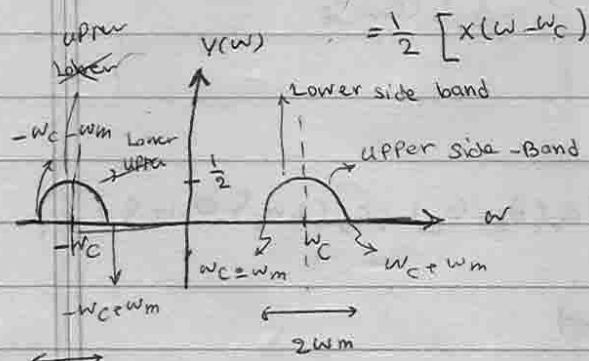 = 1/2 [ X(ω - ωc)
upper
Lower
Y(ω)
Lower side band
-ωc - ωm
Lower
upper
1/2
upper side-Band
ω
-ωc
ωc - ωm
ωc
ωc + ωm
-ωc + ωm
2ωm